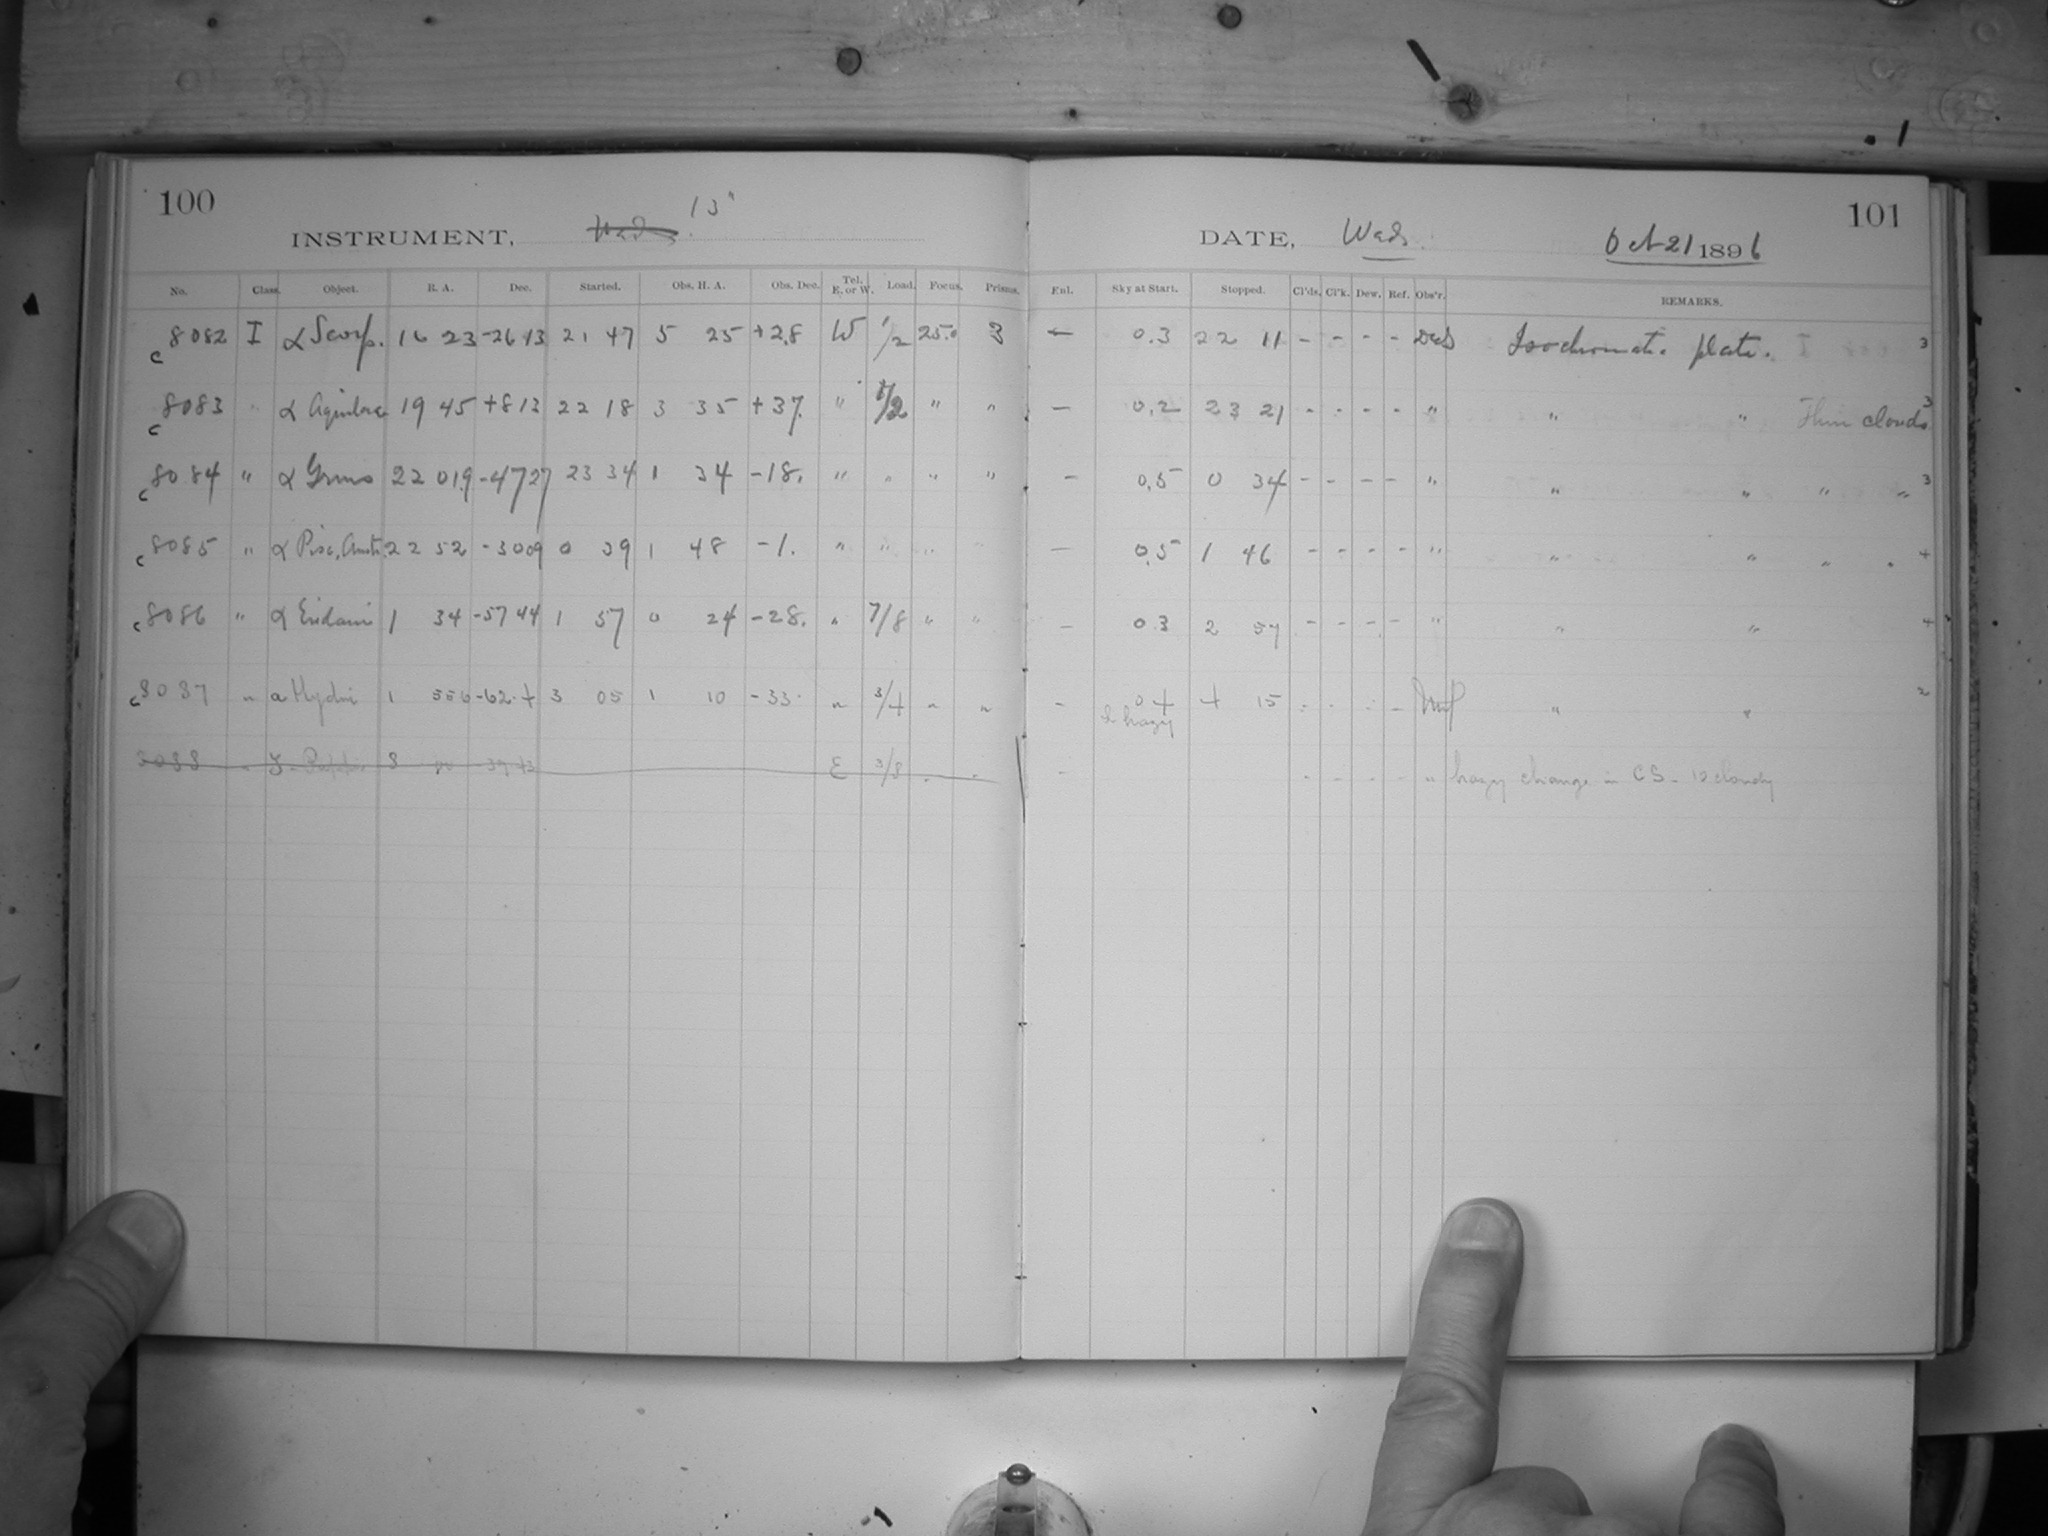 100
13"
INSTRUMENT,
No. Class. Object. R. A. Dec. Started. Obs. H. A. Obs. Dec. Tel. E. or W. Load. Focus. Prisms.
c 8082 I α Scorp. 16 23 -26 13 21 47 5 25 +28 W 1/2 25.0 3
c 8083 " α Aquilae 19 45 +8 13 22 18 3 35 +37. " 1/2 " "
c 8084 " α Gruis 22 01.9 -47 27 23 34 1 34 -18. " " " "
c 8085 " α Pisc. Austr. 22 52 -30 09 0 39 1 48 -1. " " " "
c 8086 " α Eridani 1 34 -57 44 1 57 0 24 -28. " 7/8 " "
c 8087 " α Hydri 1 55.6 -62. 4 3 05 1 10 -33. " 3/4 " "
8088 " 8 E 3/8 " "
101
DATE, Weds. Oct 21 1896
Enl. Sky at Start. Stopped. Cl'ds. Cl'k. Dew. Ref. Obs'r. REMARKS.
— 0.3 22 11 - - - - Isochromatic plate. 3
— 0.2 23 21 - - - - " " " Thin clouds. 3
— 0.5 0 34 - - - - " " " " " 3
— 0.5 1 46 - - - - " " " " " 4
— 0.3 2 57 - - - - " " " 4
- 0 4 4 15 - - - - " " 2
& hazy
- - - - - " hazy change in CS - 10 cloudy